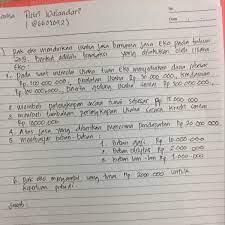 Putri Wulandari
No
Date
Pak eko mendirikan usaha jasa bernama jasa Eko pada tahun
2018. Berikut adalah transaksi yang dilakukan oleh usaha
Eko:
1. Pada saat memulai usaha tuan Eko menyerahkan dana sebesar
Rp. 100.000.000, Peralatan usaha Rp. 50.000.000, kendaraan
2. Membeli perlengkapan secara tunai sebesar
3. Membeli tambahan perlengkapan usaha secara kredit senilai
Rp. 10.000.000
4. Atas jasa yang diberikan menerima pendapatan Rp 20.000.000
5. Membayar beban-beban:
1. Beban gaji Rp 10.000.000
2. Beban utilitas Rp 2.000.000
3. Beban lain-lain Rp 1.000.000
6. Pak eko mengambil uang tunai Rp 2000.000 untuk
keperluan pribadi
Jawab: